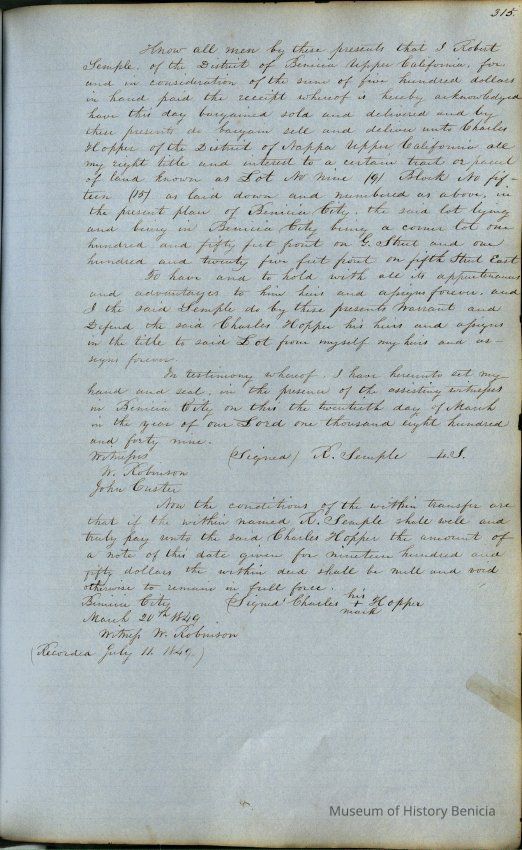 315.
Know all men by these presents that I Robert
Semple, of the District of Benicia Upper California, for
and in consideration of the sum of five hundred dollars
in hand paid the receipt whereof is hereby acknowledged
have this day bargained sold and delivered and by
these presents do bargain sell and deliver unto Charles
Hopper of the District of Nappa Upper California all
my right title and interest to a certain tract or parcel
of land known as Lot No nine (9) Block No fif-
teen (15) as laid down and numbered as above, in
the present plan of Benicia City, the said lot lying
and being in Benicia City being a corner lot one
hundred and fifty feet front on G. Street and one
hundred and twenty five feet front on fifth Street East
To have and to hold with all its appurtenances
and advantages to him heirs and assigns forever, and
I the said Semple do by these presents Warrant and
Defend the said Charles Hopper his heirs and assigns
in the title to said Lot from myself my heirs and as-
signs forever.
In testimony whereof, I have hereunto set my
hand and seal, in the presence of the assisting witnesses
in Benicia City on this the twentieth day of March
in the year of our Lord one thousand eight hundred
and forty nine.
Witnesses (Signed) R. Semple L.S.
W. Robinson
John Custer
Now the conditions of the within transfer are
that if the within named R. Semple shall well and
truly pay unto the said Charles Hopper the amount of
a note of this date given for nineteen hundred and
fifty dollars the within deed shall be null and void
otherwise to remain in full force.
Benicia City (Signed Charles his + mark Hopper
March 20th 1849
Witness W. Robinson
(Recorded July 11. 1849.)
Museum of History Benicia